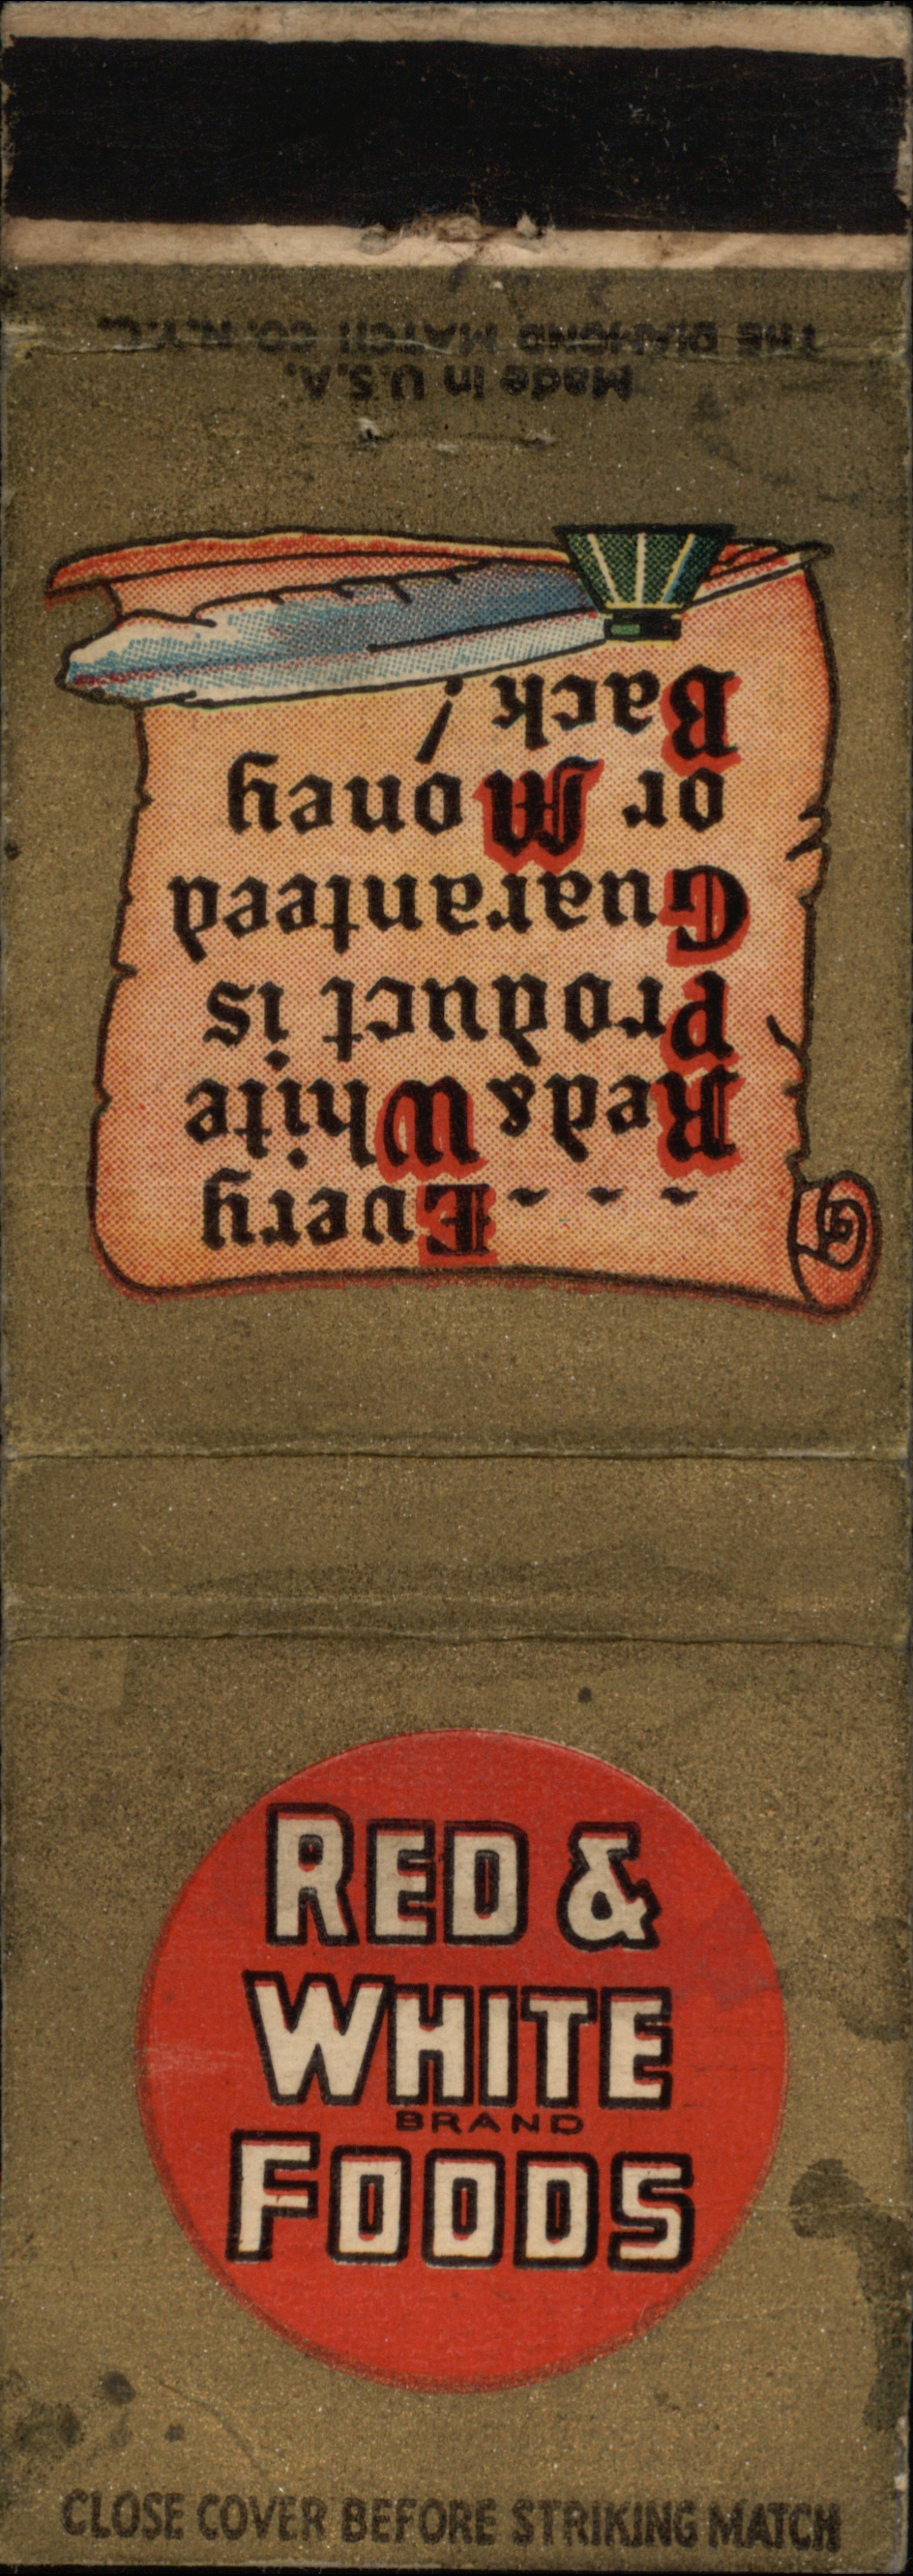 THE DIAMOND MATCH CO. N.Y.C.
Made in U.S.A.
- - - Every
Red & White
Product is
Guaranteed
or Money
Back!
RED &
WHITE
BRAND
FOODS
CLOSE COVER BEFORE STRIKING MATCH